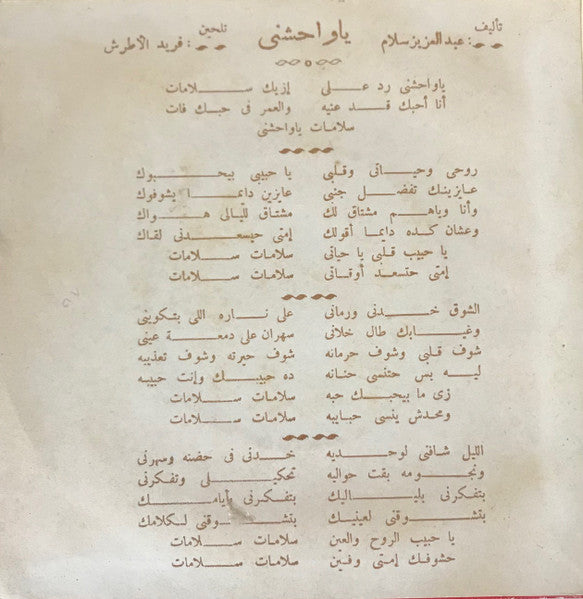 تأليف : عبد العزيز سلام ياواحشنى تلحين : فريد الأطرش
ياواحشنى رد عـلى إزيك سـلامات
أنا أحبك قـد عنيه والعمر فى حبـك فات
سلامات ياواحشنى
روحى وحيـاتى وقلبى يا حبيبى بيحـبوك
عـايزينـك تفضـل جنبى عايزين دايمـا يشوفوك
وأنا وياهـم مشتاق لك مشتاق لليالى هـواك
وعشان كده دايمـا أقولك إمتى حيسعـدنى لقاك
يا حبيب قلبى يا حياتى سلامات سـلامات
إمتى حتسعد أوقـاتى سلامات سـلامات
الشوق خـدنى ورمانى على نـاره اللى بتكوينى
وغيـابك طال خلانى سهران على دمعـة عينى
شوف قلبى وشوف حرمانه شوف حيرته وشوف تعذيبه
ليـه بس حتنسى حنانه ده حبيبـك وإنت حبيبه
زى ما بيحبـك حبه سلامات سـلامات
ومحدش ينسى حبايبه سلامات سـلامات
الليل شافنى لوحـديه خـدنى فى حضنه وسهرنى
ونجـومه بقت حواليه تحكيـلى وتفكرنى
بتفكرنى بليـاليك بتفكـرنى بأيامـك
بتشـوقنى لعينيـك بتشـوقنى لـكلامك
يا حبيب الروح والعين سلامات سـلامات
حشوفـك إمتى وفـين سلامات سـلامات